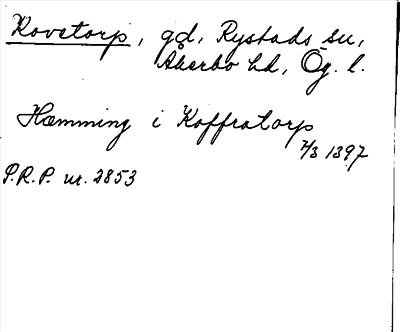 Rovetorp, gd, Rystads sn,
Åkerbo hd, Ög. l.
Hæmming i Roffratorp
7/3 1397
S.R.P. nr. 2853